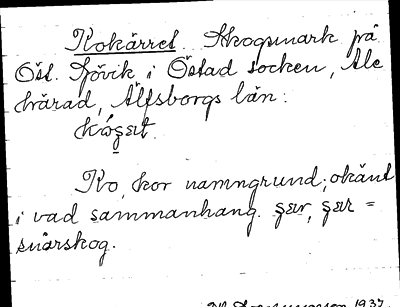 Kokärret Skogsmark på
Öst. Sjövik i Östad socken, Ale
härad, Älfsborgs län:
Ko, kor namngrund; okänt
i vad sammanhang. =
snårskog.
1937